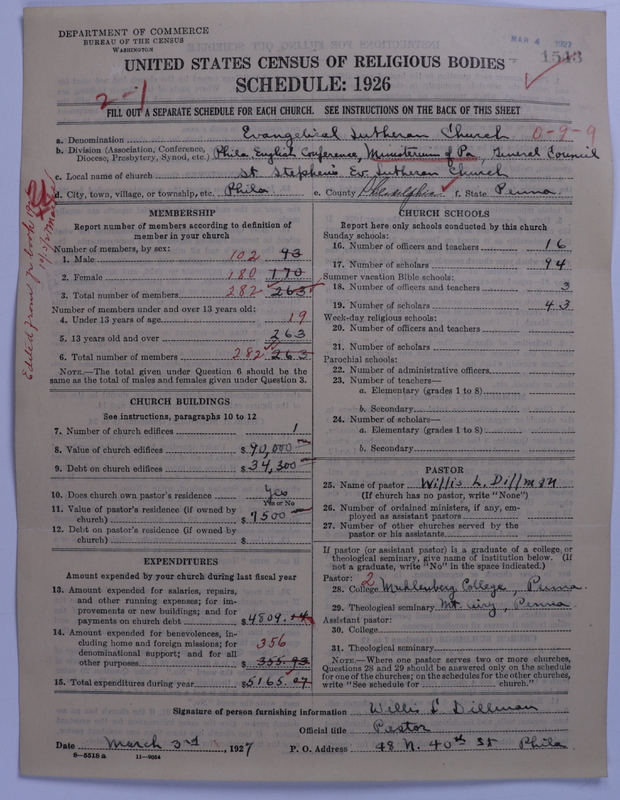 DEPARTMENT OF COMMERCE
BUREAU OF THE CENSUS
WASHINGTON
MAR 4 1927
1513
UNITED STATES CENSUS OF RELIGIOUS BODIES
SCHEDULE: 1926
2-1
FILL OUT A SEPARATE SCHEDULE FOR EACH CHURCH. SEE INSTRUCTIONS ON THE BACK OF THIS SHEET
a. Denomination Evangelical Lutheran Church 0-9-9
b. Division (Association, Conference, Diocese, Presbytery, Synod, etc.) Phila English Conference, Ministerium of Pa, General Council
c. Local name of church St Stephens Ev. Lutheran Church
d. City, town, village, or township, etc. Phila e. County Philadelphia f. State Penna
MEMBERSHIP
Report number of members according to definition of
member in your church
Number of members, by sex:
1. Male 102 93
2. Female 180 170
3. Total number of members 282 263
Number of members under and over 13 years old:
4. Under 13 years of age 19
5. 13 years old and over 263
6. Total number of members 282 263
NOTE.—The total given under Question 6 should be
the same as the total of males and females given under Question 3.
CHURCH BUILDINGS
See instructions, paragraphs 10 to 12
7. Number of church edifices 1
8. Value of church edifices $ 90,000
9. Debt on church edifices $ 34,300
10. Does church own pastor's residence Yes
Yes or No
11. Value of pastor's residence (if owned by
church) $ 7500
12. Debt on pastor's residence (if owned by
church) $
EXPENDITURES
Amount expended by your church during last fiscal year
13. Amount expended for salaries, repairs,
and other running expenses; for im-
provements or new buildings; and for
payments on church debt $ 4809.14
14. Amount expended for benevolences, in-
cluding home and foreign missions; for
denominational support; and for all
other purposes $ 356 355.93
15. Total expenditures during year $ 5165.07
CHURCH SCHOOLS
Report here only schools conducted by this church
Sunday schools:
16. Number of officers and teachers 16
17. Number of scholars 94
Summer vacation Bible schools:
18. Number of officers and teachers 3
19. Number of scholars 43
Week-day religious schools:
20. Number of officers and teachers
21. Number of scholars
Parochial schools:
22. Number of administrative officers
23. Number of teachers—
a. Elementary (grades 1 to 8)
b. Secondary
24. Number of scholars—
a. Elementary (grades 1 to 8)
b. Secondary
PASTOR
25. Name of pastor Willis L. Dillman
(If church has no pastor, write "None")
26. Number of ordained ministers, if any, em-
ployed as assistant pastors
27. Number of other churches served by the
pastor or his assistants
If pastor (or assistant pastor) is a graduate of a college or
theological seminary, give name of institution below. (If
not a graduate, write "No" in the space indicated.)
Pastor: 2
28. College Muhlenberg College, Penna.
29. Theological seminary Mt Airy, Penna
Assistant pastor:
30. College
31. Theological seminary
NOTE.—Where one pastor serves two or more churches,
Questions 28 and 29 should be answered only on the schedule
for one of the churches; on the schedules for the other churches,
write "See schedule for church."
Signature of person furnishing information Willis L Dillman
Official title Pastor
Date March 3rd 1927 P. O. Address 48 N. 40th St Phila
8—5518 a 11—9064